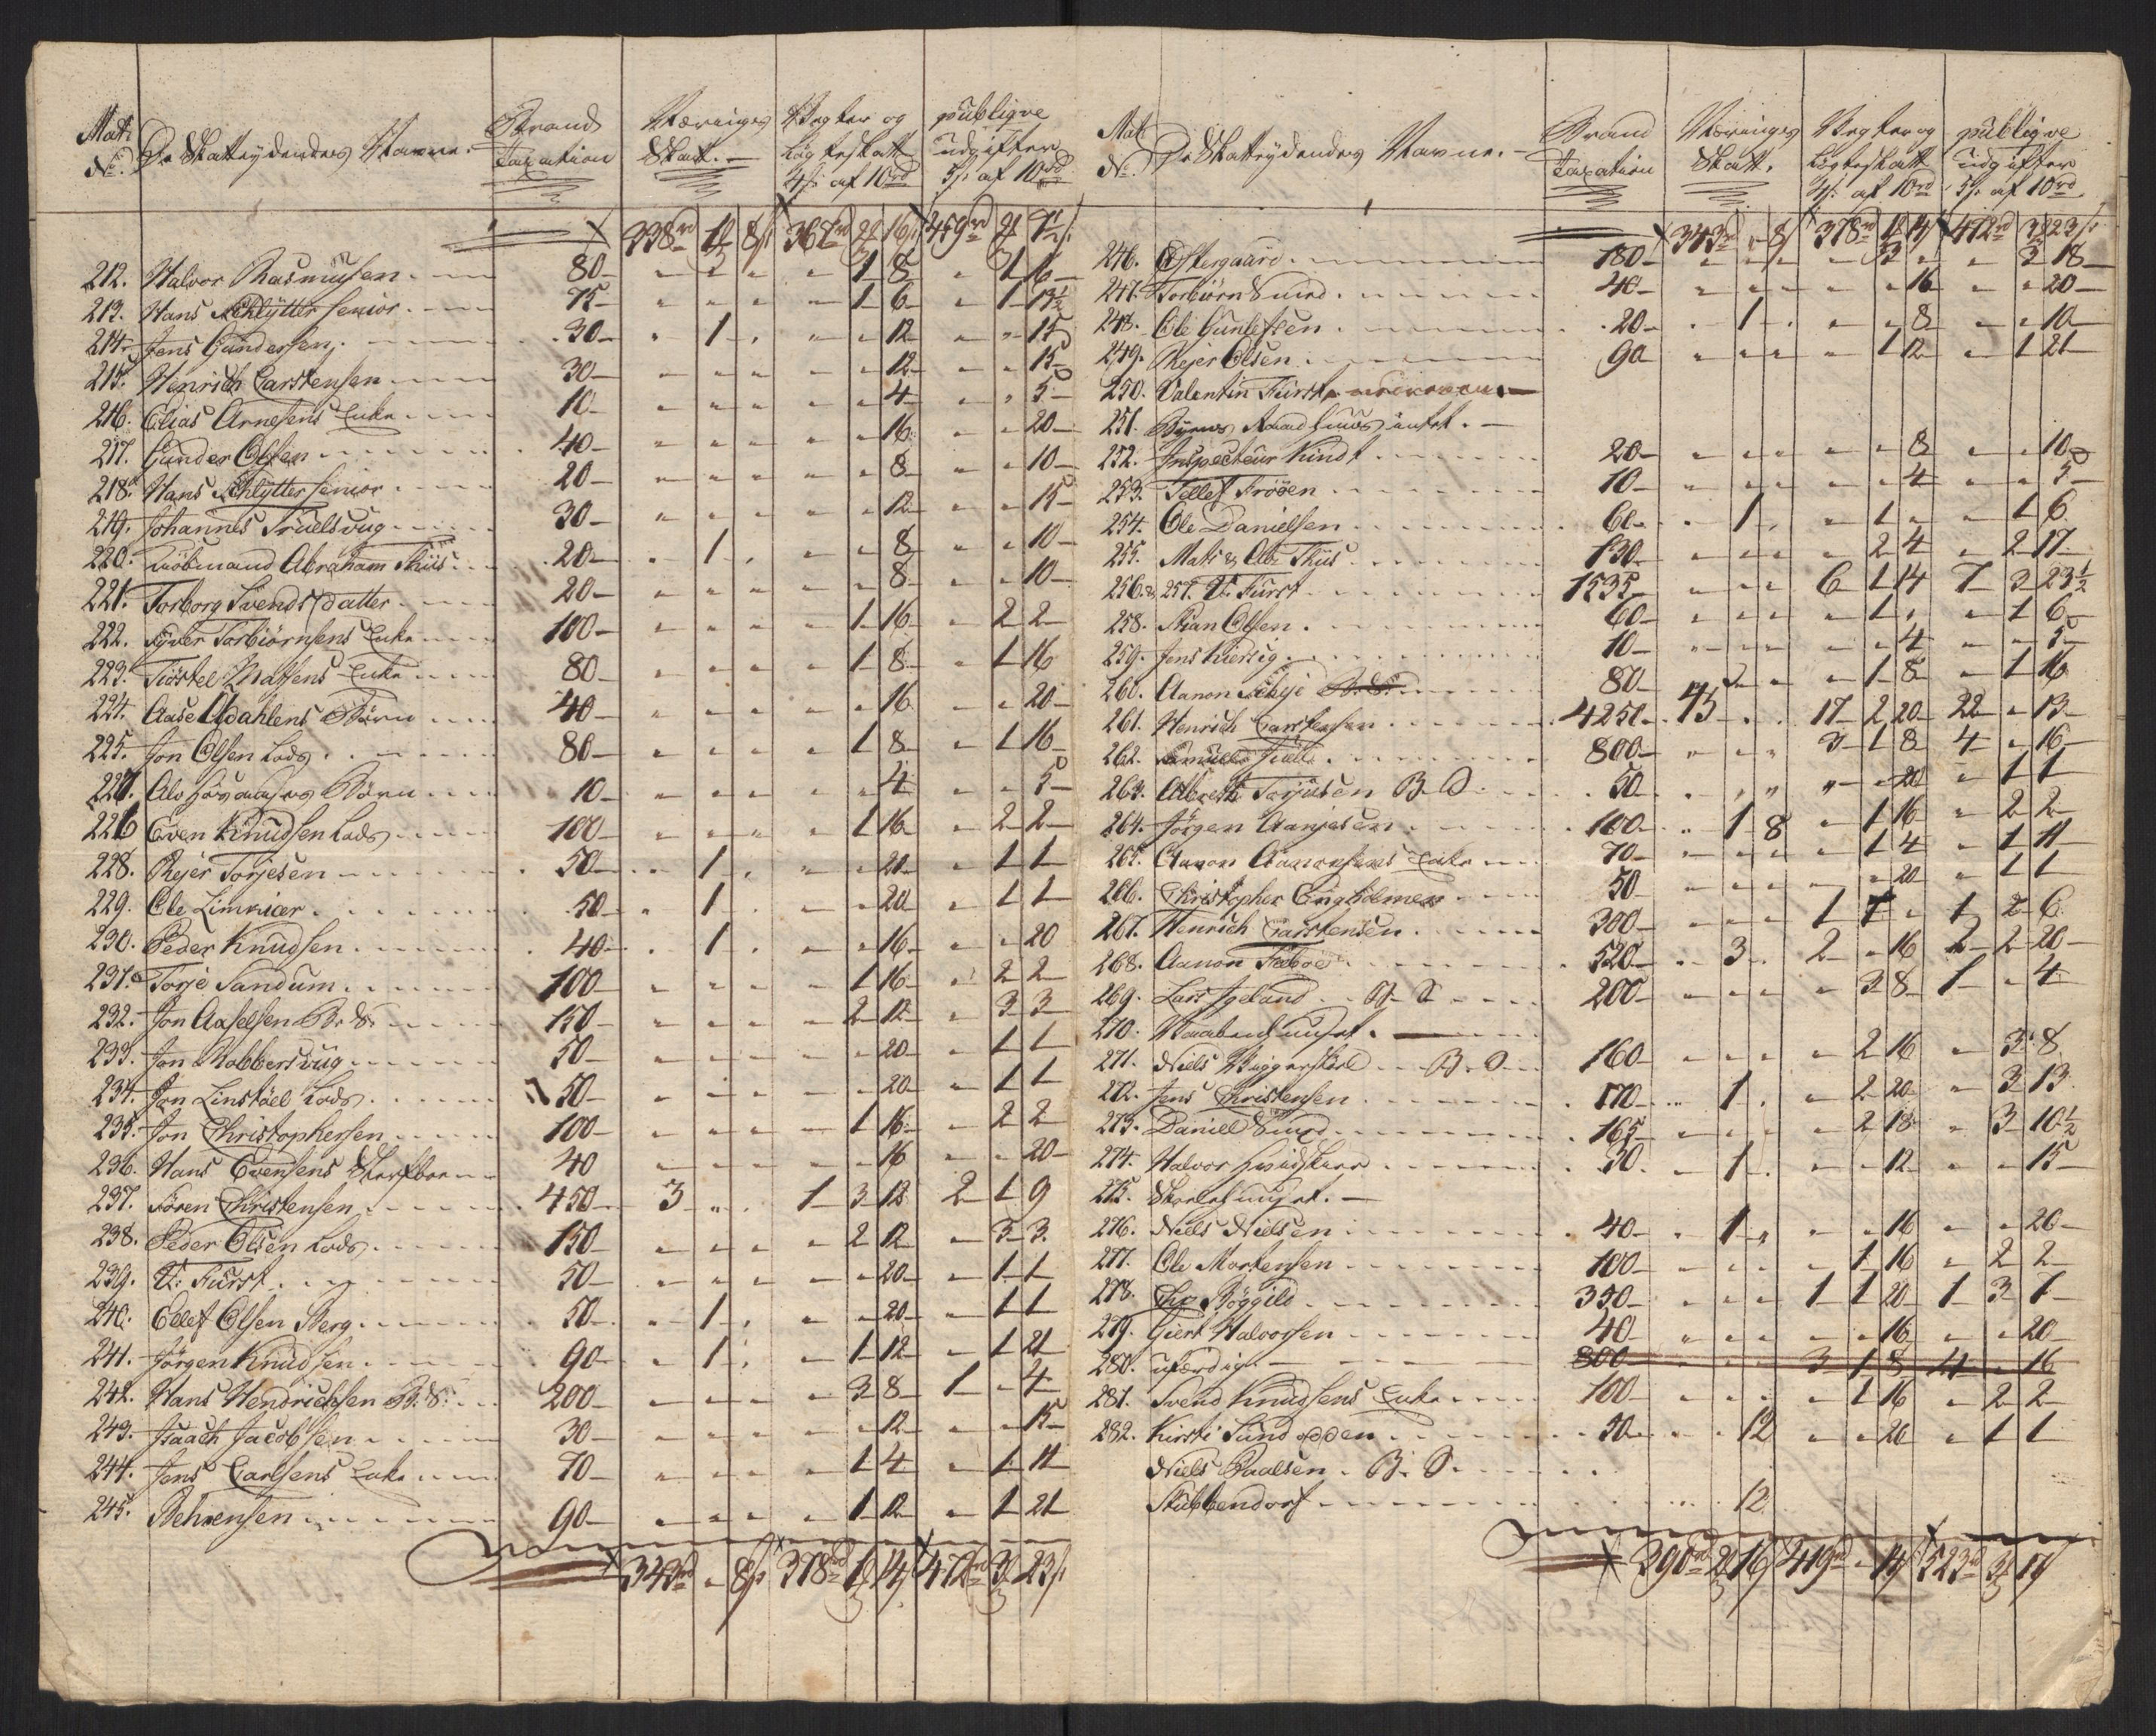 Mat: No. De Skatteydendes Navne. Brand Taxation Nærings Skatt. Vegter og Lögteskatt 4 s. af 10 rd publiqve udgifter 5 s. af 10 rd
338 rd 1 8 s 367 rd 2 16 s 459 rd 2 7½ s
212. Halvor Rasmusen 80 " 2 " " 1 8 " 1 16
213. Hans Schlytter senior 75 " " " " 1 6 " 1 13½
214. Jens Gundersen 30 " 1 " " " 12 " " 15
215. Henrich Carstensen 30 " " " " " 12 " " 15
216. Elias Arnesens Enke 10 " " " " " 4 " " 5
217. Gunder Olsen 40 " " " " " 16 " " 20
218. Hans Schlytter senior 20 " " " " " 8 " " 10
219. Johannes Truelsvug 30 " " " " " 12 " " 15
220. Kiöbmand Abraham Thiis 20 " 1 " " " 8 " " 10
221. Torborg Svends datter 20 " " " " " 8 " " 10
222. Syver Torbiörnsens Enke 100 " " " " 1 16 " 2 2
223. Tiöstel Matsens Enke 80 " " " " 1 8 " 1 16
224. Aase Updahlens Börn 40 " " " " " 16 " " 20
225. Jon Olsen Lods 80 " " " " 1 8 " 1 16
227. Börn 10 " " " " " 4 " " 5
226 Even Knudsen Lods 100 " " " " 1 16 " 2 2
228. Rejer Torjesen 50 " 1 " " " 20 " 1 1
229. Ole Limkier 50 " 1 " " " 20 " 1 1
230. Peder Knudsen 40 " 1 " " " 16 " " 20
231. Torje Sandum 100 " " " " 1 16 " 2 2
232. Jon Axelsen B. S. 150 " " " " 2 12 " 3 3
233. Jon Robbersvug 50 " " " " " 20 " 1 1
234. Jon Linstöel Lods 50 " " " " " 20 " 1 1
235. Jon Christophersen 100 " " " " 1 16 " 2 2
236. Hans Evensens 40 " " " " " 16 " " 20
237. Sören Christensen 450 3 " " 1 3 12 2 1 9
238. Peder Olsen Lods 150 " " " " 2 12 " 3 3
239. V: Fürst 50 " " " " " 20 " 1 1
240. Ellef Olsen Berg 50 " 1 " " " 20 " 1 1
241. Jörgen Knudsen 90 " 1 " " 1 12 " 1 21
242. Hans Hendrichsen B. S. 200 " " " " 3 8 1 " 4
243. Isaach Jacobsen 30 " " " " " 12 " " 15
244. Jens Carlsens Enke 70 " " " " 1 4 " 1 11
245. Behrensen 90 " " " " 1 12 " 1 21
343 rd " 8 s 378 rd 1 14 s 472 rd 3 23 s
Mat No. De Skatteydendes Navne. Brand Taxation Nærings Skatt. Vegter og Lögteskatt 4 s. af 10 rd publiqve udgifter 5 s. af 10 rd
343 rd " 8 s 378 rd 1 14 s 472 rd 3 23 s
246. Östergaard 180 " " " " 3 " " 3 18
247. Torbiörn Smed 40 " " " " " 16 " " 20
248. Ole Gunlefsen 20 " 1 " " " 8 " " 10
249. Rejer Olsen 90 " " " " 1 12 " 1 21
250. Valentin Fürst
251. Byens Raadhuus intet.
252. Inspecteur Kindt 20 " " " " " 8 " " 10
253. Tellef Fröoen 10 " " " " " 4 " " 5
254. Ole Danielsen 60 " 1 " " 1 " " 1 6
255. Mats & Abr Thiis 130 " " " " 2 4 " 2 17
256. & 257. V. Fürst 1535 " " " 6 1 14 7 3 23½
258. Stian Olsen 60 " " " " 1 " " 1 6
259. Jens Kiersig 10 " " " " " 4 " " 5
260. Aanon Sebye B. S. 80 " 2 " " 1 8 " 1 16
261. Henrich Carstensen 4250 45 " " 17 2 20 22 " 13
262. 800 " " " 3 1 8 4 " 16
263. Albreth Torjusen B. S. 50 " " " " " 20 " 1 1
264. Jörgen Aanjesen 100 " 1 8 " 1 16 " 2 2
265. Aanon Aanonsens Enke 70 " " " " 1 4 " 1 11
266. Christopher Englidemes 50 " " " " " 20 " 1 1
267. Henrich Carstensen 300 " " " 1 1 " 1 2 6
268. Aanon Fieboe 520 " 3 " 2 " 16 2 2 20
269. Lars Igeland B. S. 200 " " " " 3 8 1 " 4
270. Vaabenhuuset.
271. Niels Viggerskeel B. S. 160 " " " " 2 16 " 3 8
272. Jens Christensen 170 " 1 " " 2 20 " 3 13
273. Daniel Smed 165 " " " " 2 18 " 3 10½
274. Halvor 30 " 1 " " " 12 " " 15
275. Skolehuuset.
276. Niels Nielsen 40 " 1 " " " 16 " " 20
277. Ole Mortensen 100 " " " " 1 16 " 2 2
278. Chr Böggild 350 " " " 1 1 20 1 3 7
279. Giert Halvorsen 40 " " " " " 16 " " 20
280. ufærdig. 800 " " " 3 1 8 4 " 16
281. Svend Knudsens Enke 100 " " " " 1 16 " 2 2
282. Kirsti Sundodden 50 " " 12 " " 20 " 1 1
Niels Paalsen. B. S.
Stubbendorf 12
390 rd 2 16 419 rd " 14 s 523 rd 3 17